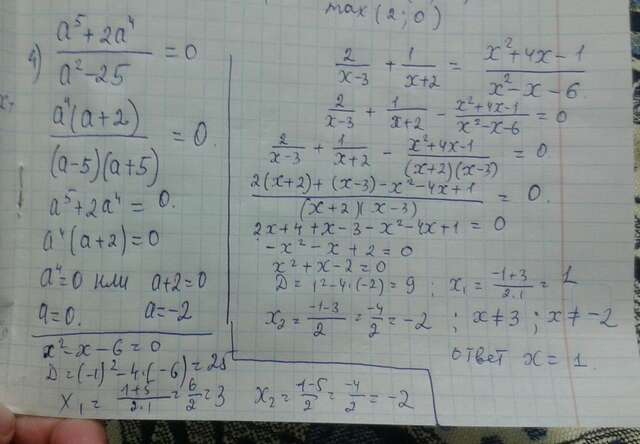 max (2; 0)
4) (a⁵+2a⁴)/(a²-25) = 0
(a⁴(a+2))/((a-5)(a+5)) = 0.
a⁵+2a⁴ = 0.
a⁴(a+2)=0
a⁴=0 или a+2=0
a=0. a=-2
x²-x-6=0
D=(-1)²-4·(-6)=25
x₁ = (1+5)/(2·1) = 6/2 = 3 x₂ = (1-5)/2 = -4/2 = -2
2/(x-3) + 1/(x+2) = (x²+4x-1)/(x²-x-6)
2/(x-3) + 1/(x+2) - (x²+4x-1)/(x²-x-6) = 0
2/(x-3) + 1/(x+2) - (x²+4x-1)/((x+2)(x-3)) = 0.
(2(x+2)+(x-3)-x²-4x+1)/((x+2)(x-3)) = 0.
2x+4+x-3-x²-4x+1=0
-x²-x+2=0
x²+x-2=0
D= 1²-4·(-2)=9 ; x₁ = (-1+3)/(2·1) = 1
x₂ = (-1-3)/2 = -4/2 = -2 ; x≠3 ; x≠-2
ответ x=1.